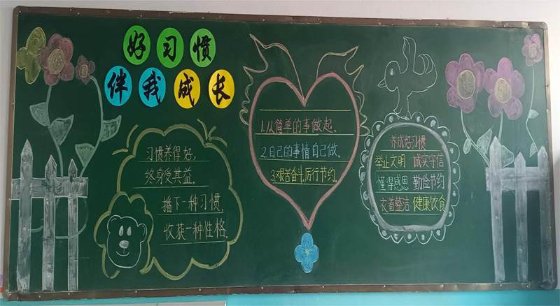 好习惯
伴我成长
习惯养得好,
终身受其益.
播下一种习惯,
收获一种性格.
1.从简单的事做起.
2.自己的事情自己做.
3.艰苦奋斗厉行节约.
养成好习惯
举止文明 诚实守信
懂得感恩 勤俭节约
文着整洁 健康饮食